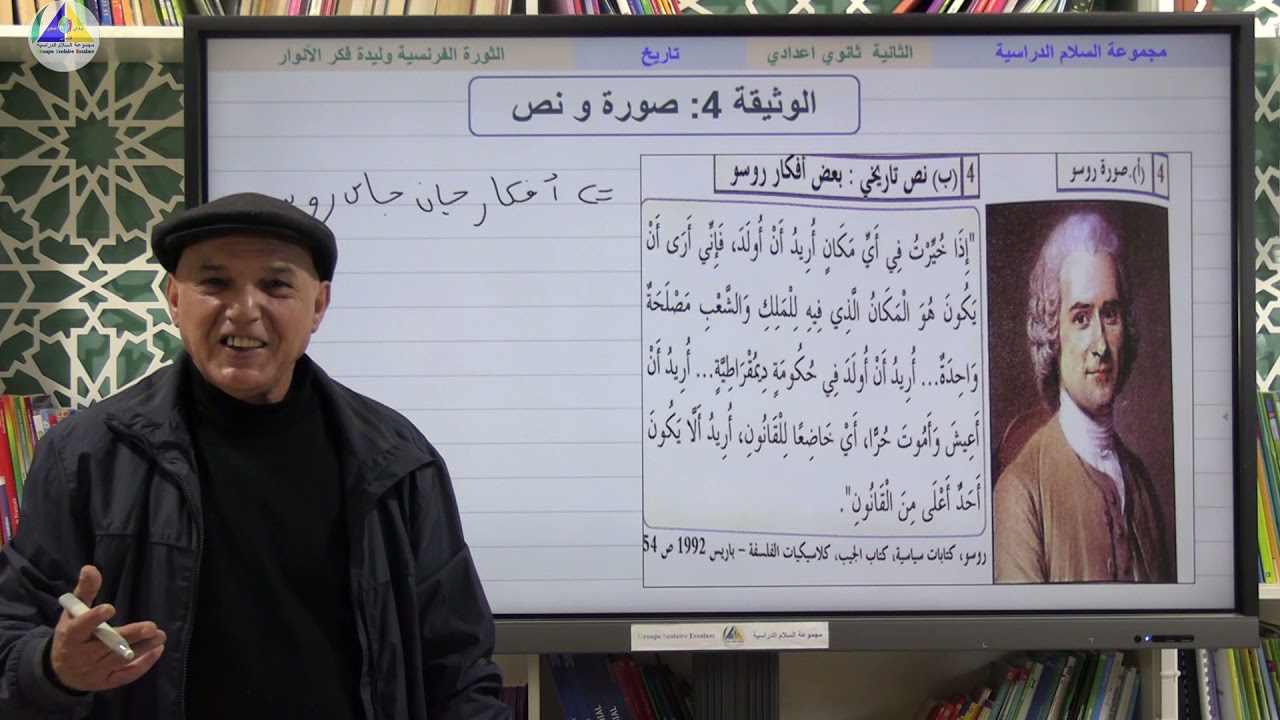 مجموعة السلام الدراسية
Groupe Scolaire Essalam
مجموعة السلام الدراسية الثانية ثانوي اعدادي تاريخ الثورة الفرنسية وليدة فكر الأنوار
الوثيقة 4: صورة و نص
4 (أ).صورة روسو
4 (ب) نص تاريخي : بعض أفكار روسو
"إِذَا خُيِّرْتُ فِي أَيِّ مَكَانٍ أُرِيدُ أَنْ أُولَدَ، فَإِنِّي أَرَى أَنْ
يَكُونَ هُوَ الْمَكَانُ الَّذِي فِيهِ لِلْمَلِكِ وَالشَّعْبِ مَصْلَحَةٌ
وَاحِدَةٌ... أُرِيدُ أَنْ أُولَدَ فِي حُكُومَةٍ دِيمُقْرَاطِيَّةٍ... أُرِيدُ أَنْ
أَعِيشَ وَأَمُوتَ حُرًّا، أَيْ خَاضِعًا لِلْقَانُونِ، أُرِيدُ أَلَّا يَكُونَ
أَحَدٌ أَعْلَى مِنَ الْقَانُونِ".
روسو، كتابات سياسية، كتاب الجيب، كلاسيكيات الفلسفة – باريس 1992 ص 54
=> أفكار جان جاك
Groupe Scolaire Essalam مجموعة السلام الدراسية